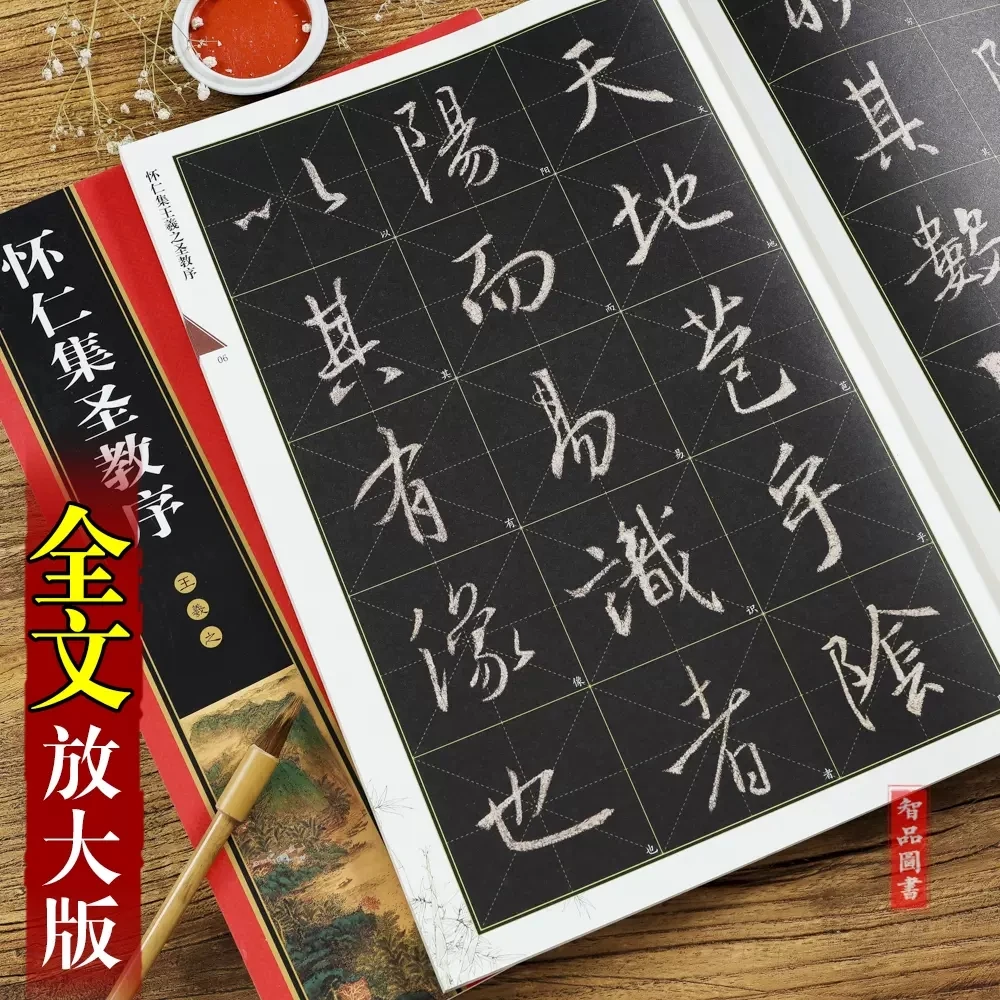 怀仁集圣教序
王羲之
全文
放大版
怀仁集王羲之圣教序
06
天地苞乎陰
陽而易識者
以其有像也
天 地 苞 乎
阳 而 易 识 者
以 其 有 像 也
其數
智品圖書